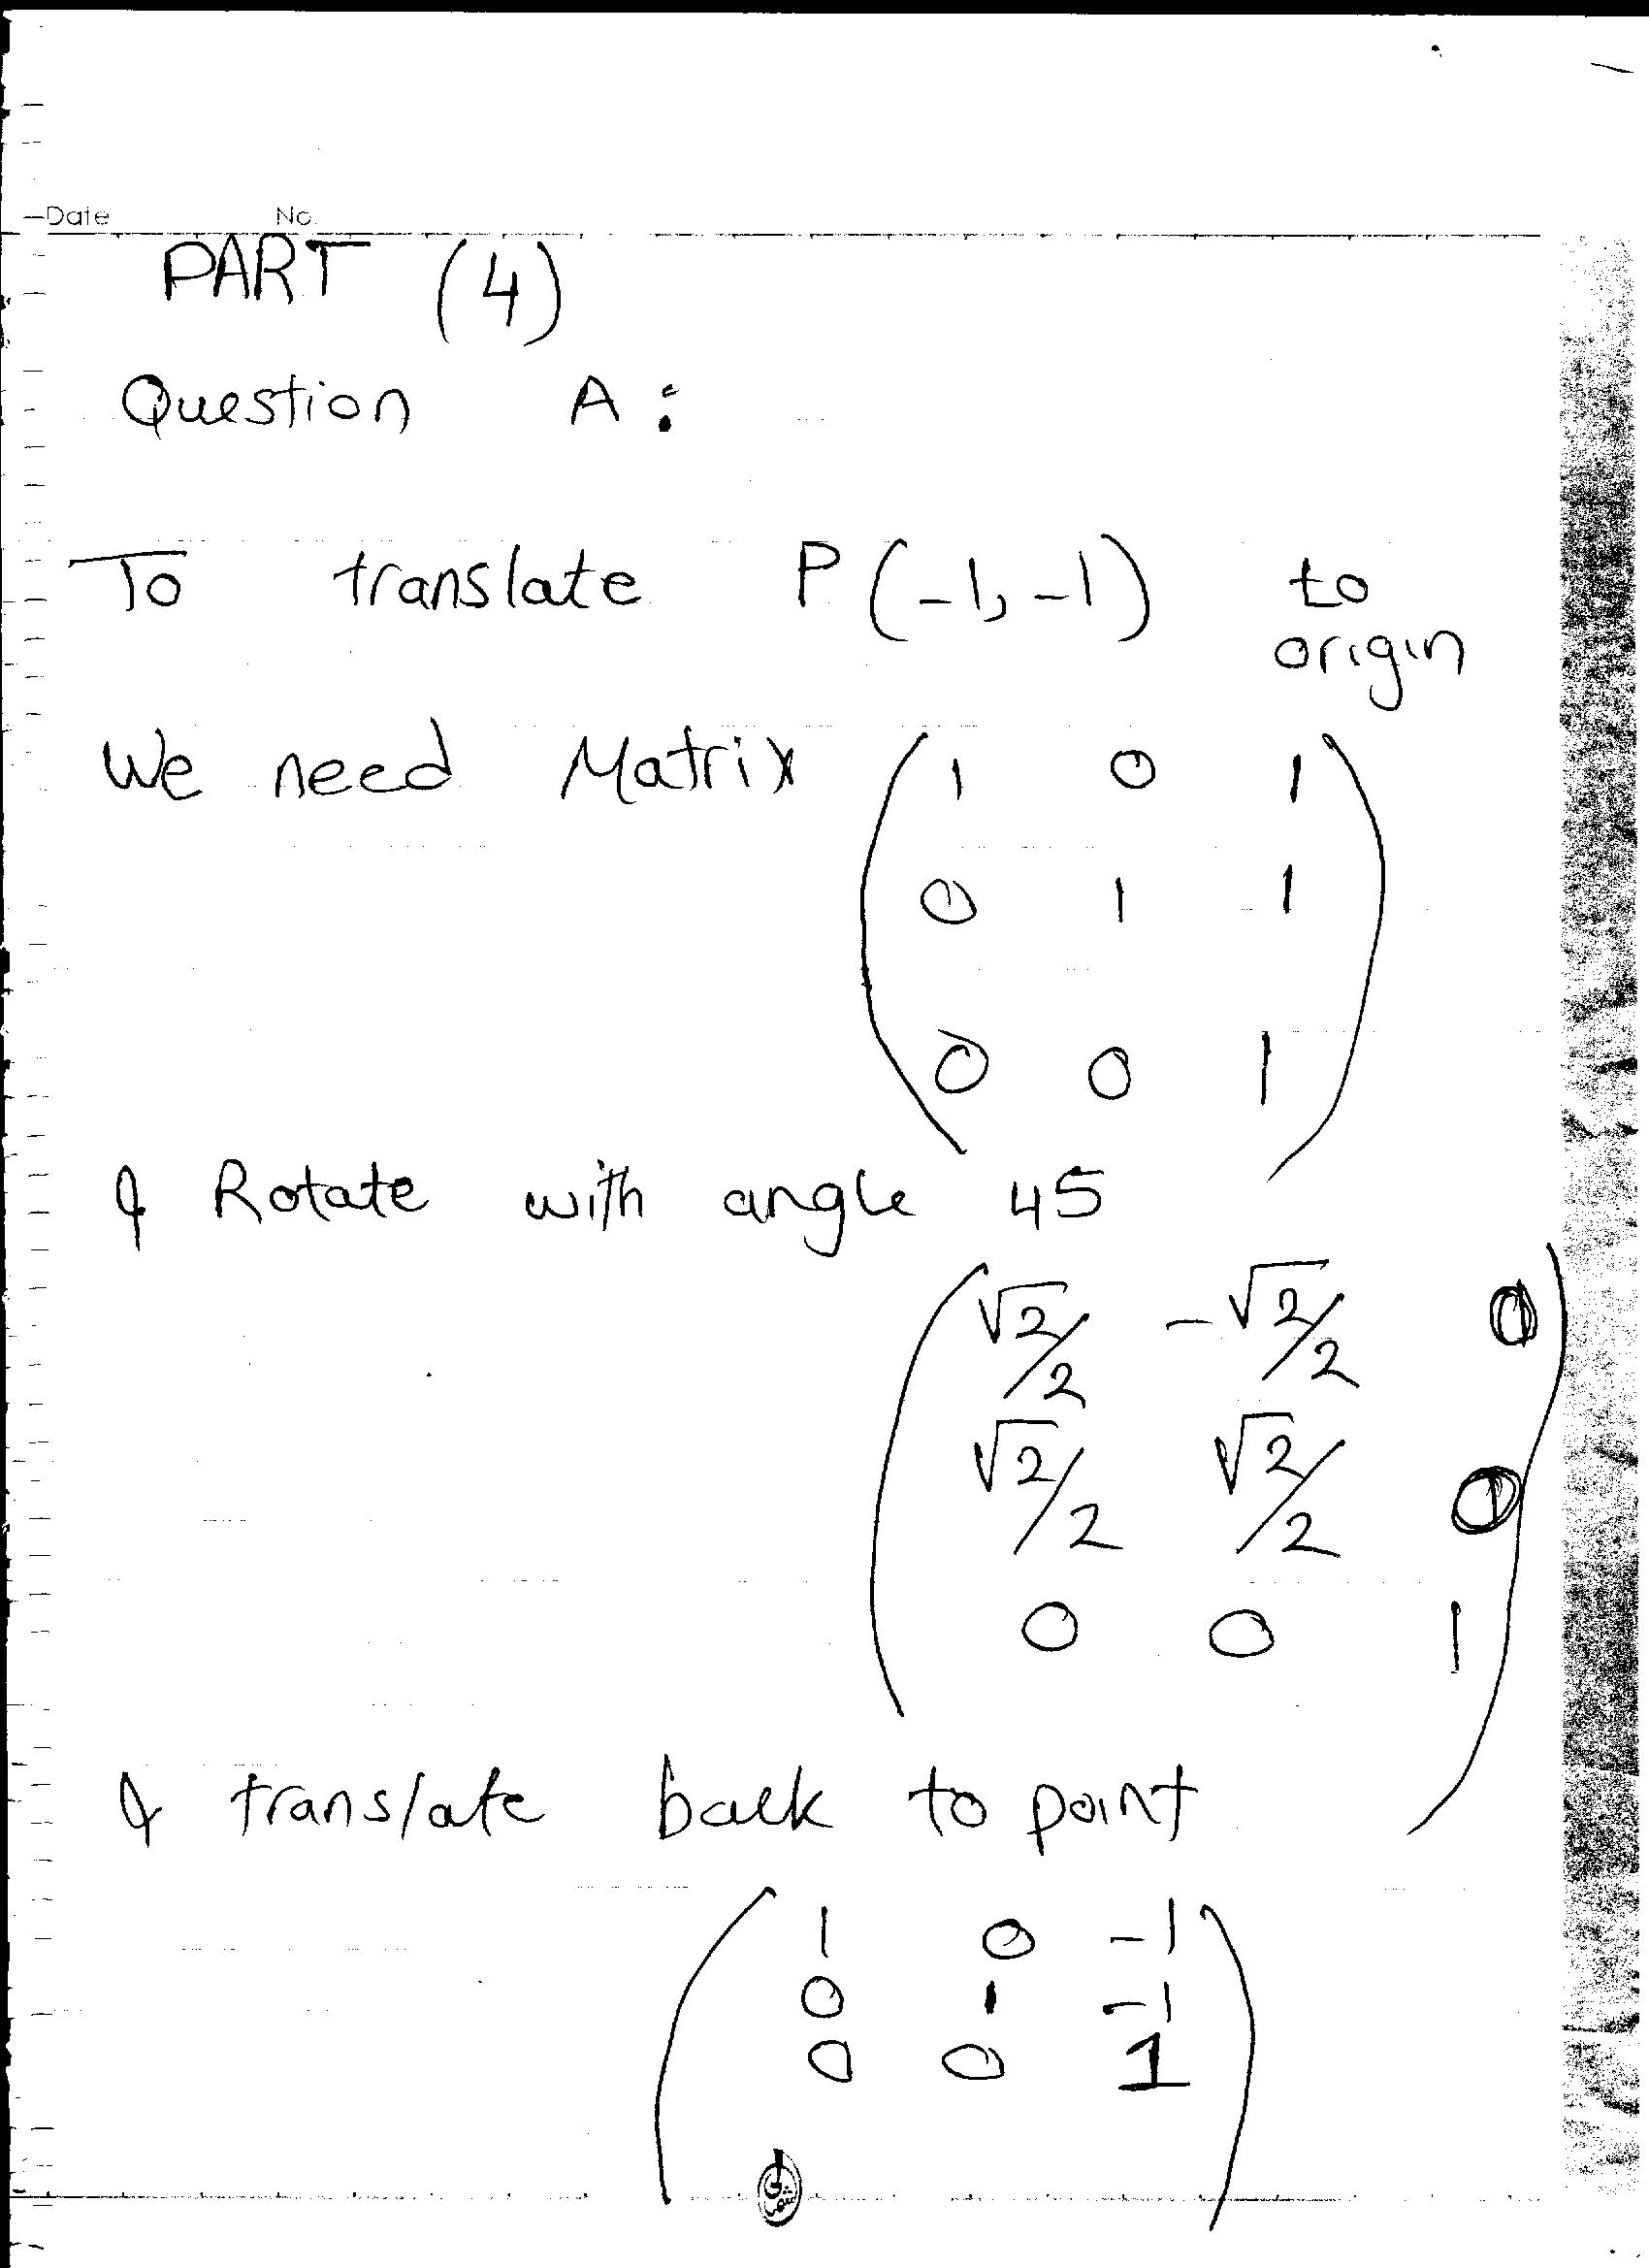 Date No.
PART (4)
Question A :
To translate P(-1,-1) to
origin
We need Matrix ( 1 0 1
0 1 1
0 0 1 )
& Rotate with angle 45
( √2/2 -√2/2 0
√2/2 √2/2 0
0 0 1 )
& translate back to point
( 1 0 -1
0 1 -1
0 0 1 )